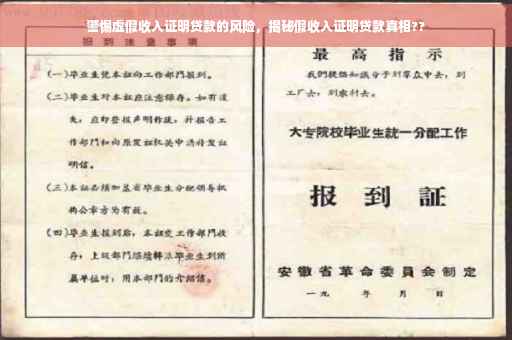 警惕虚假收入证明贷款的风险，揭秘假收入证明贷款真相??
报到注意事项
(一)毕业生凭本证向工作部门报到。
(二)毕业生对本证应注意保存。如有遗
失，应即登报声明作废，并报告工
作部门和向原发证机关申请补发证
明信。
(三)本证必须加盖省毕业生分配领导机
构公章方为有效。
(四)毕业生报到后，本证交工作部门收
存；上级部门
毕业生到所
属单位时，用本部门的介绍信。
最高指示
我们提倡知识分子到群众中去，到
工厂去，到农村去。
大专院校毕业生统一分配工作
报到证
安徽省革命委员会制定
一九 年 月 日